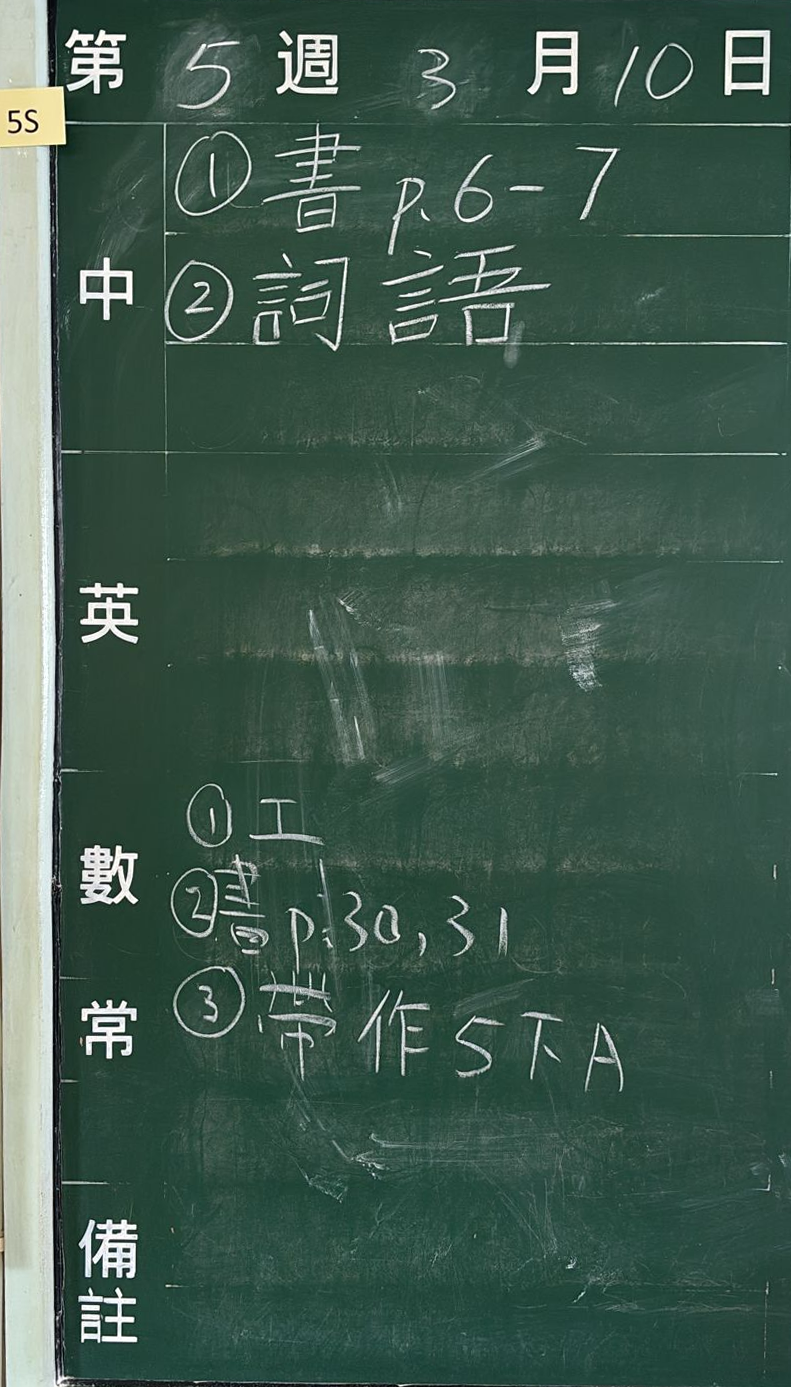 第 5 週 3 月 10 日
5S
中
① 書 p.6-7
② 詞語
英
數
① 工
② 書 p.30,31
常
③ 帶作5下A
備註